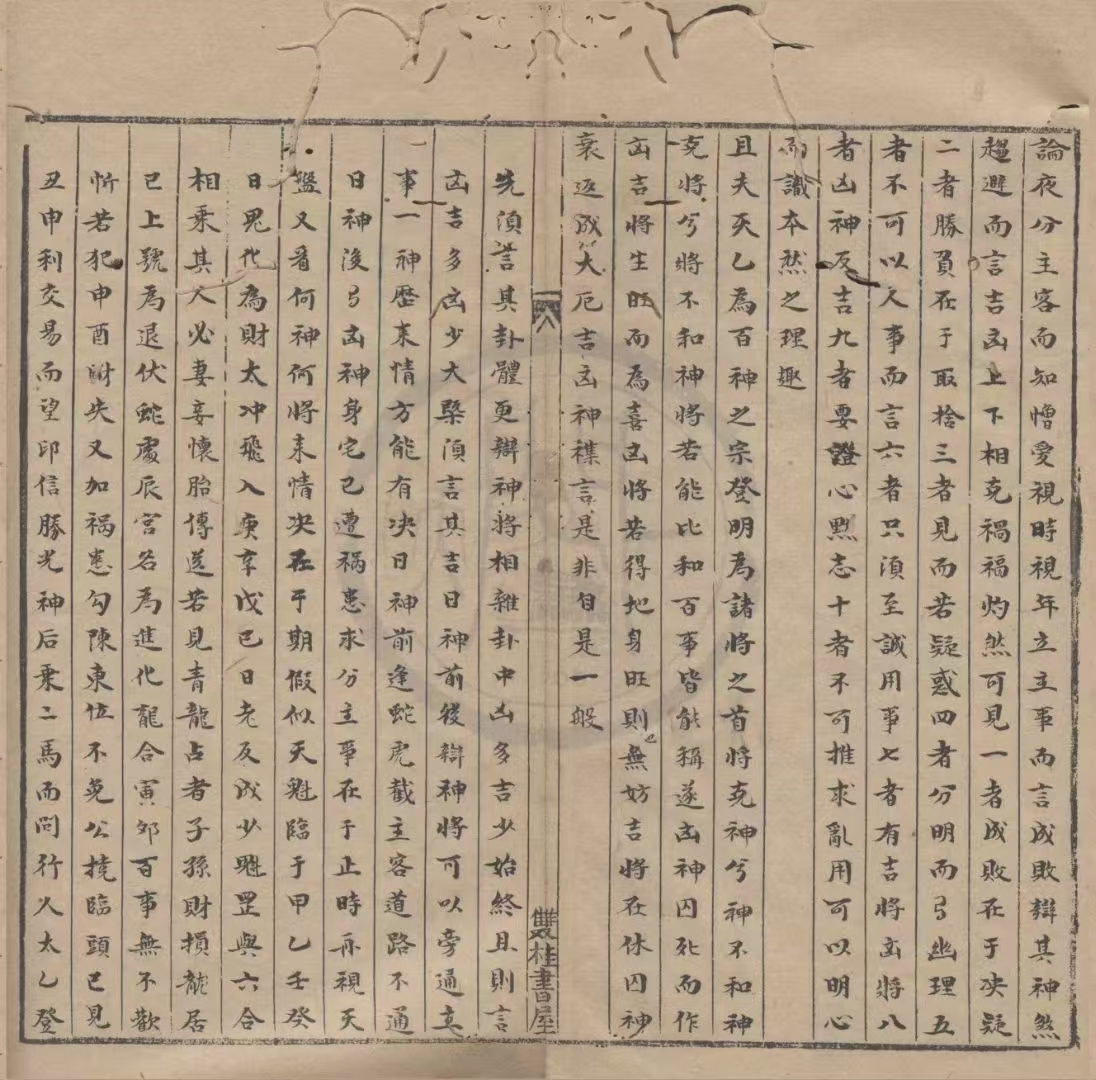 論夜分主客而知憎愛視時視年立主事而言成敗辯其神煞
趨避而言吉凶上下相克禍福灼然可見一者成敗在于决疑
二者勝負在于取捨三者見而若疑惑四者分明而弓幽理五
者不可以人事而言六者只須至誠用事七者有吉將凶將八
者凶神反吉九者要證心點志十者不可推求亂用可以明心
而識本然之理趣
且夫天乙為百神之宗登明為諸將之首將克神兮神不和神
克將兮將不和神將若能比和百事皆能稱遂凶神囚死而作
凶吉將生旺而為喜凶將若得地身旺則無妨吉將在休囚神
衰返成大厄吉凶神襍言是非自是一般
雙桂書屋
先須言其卦體更辯神將相雜卦中凶多吉少始終且則言
凶吉多凶少大槩須言其吉日神前後辯神將可以旁通立
事一神歷来情方能有决日神前逢蛇虎截主客道路不通
日神後弓凶神身宅已遭祸患求分主事在于止時再視天
盤又看何神何將来情决在于期假似天魁臨于甲乙壬癸
日鬼化為財太冲飛入庚辛戊已日老反成少魁罡與六合
相乘其人必妻妾懷胎傳送若見青龍占者子孫財損龍居
已上號為退伏蛇處辰宮名為進化龍合寅夘百事無不歡
忻若犯申酉財失又加祸患勾陳東位不免公撓臨頭已見
丑申利交易而望印信勝光神后乘二馬而問行人太乙登